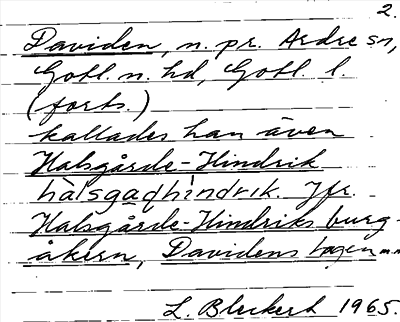 2.
Daviden, n. pr. Ardre sn,
Gotl. n. hd, Gotl. l.
(forts.)
kallades han även
Halsgårde-Hindrik
hàlsgaqhìndrik. Jfr.
Halsgårde-Hindriks burg-
åkern, Davidens hagen
L. Bleckert 1965.